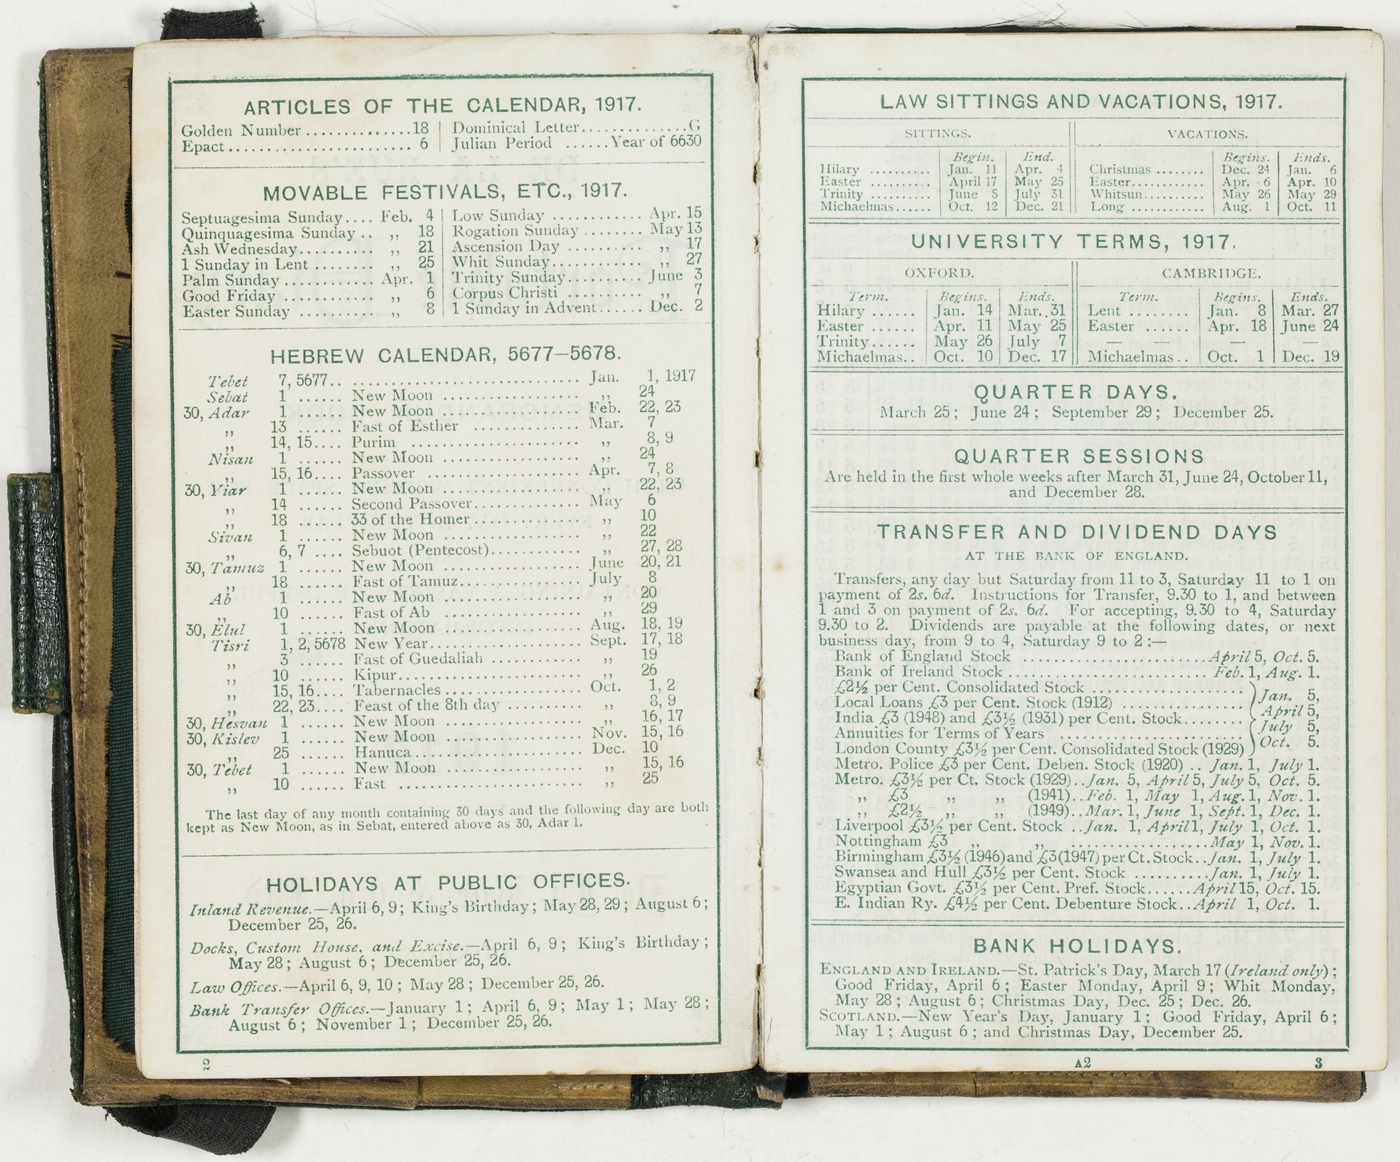 ARTICLES OF THE CALENDAR, 1917.
Golden Number ..............18 | Dominical Letter..............G
Epact........................... 6 | Julian Period ......Year of 6630
MOVABLE FESTIVALS, ETC., 1917.
Septuagesima Sunday.... Feb. 4 | Low Sunday ............ Apr. 15
Quinquagesima Sunday .. ,, 18 | Rogation Sunday ........ May 13
Ash Wednesday............ ,, 21 | Ascension Day .......... ,, 17
1 Sunday in Lent ........ ,, 25 | Whit Sunday............ ,, 27
Palm Sunday ............ Apr. 1 | Trinity Sunday.......... June 3
Good Friday ............ ,, 6 | Corpus Christi .......... ,, 7
Easter Sunday .......... ,, 8 | 1 Sunday in Advent...... Dec. 2
HEBREW CALENDAR, 5677–5678.
Tebet 7, 5677.. .............................. Jan. 1, 1917
Sebat 1 ...... New Moon .................. ,, 24
30, Adar 1 ...... New Moon .................. Feb. 22, 23
,, 13 ...... Fast of Esther ................ Mar. 7
,, 14, 15.... Purim ........................ ,, 8, 9
Nisan 1 ...... New Moon .................. ,, 24
,, 15, 16.... Passover .................... Apr. 7, 8
30, Yiar 1 ...... New Moon .................. ,, 22, 23
,, 14 ...... Second Passover.............. May 6
,, 18 ...... 33 of the Homer .............. ,, 10
Sivan 1 ...... New Moon .................. ,, 22
,, 6, 7 .... Sebuot (Pentecost)............ ,, 27, 28
30, Tamuz 1 ...... New Moon .................. June 20, 21
,, 18 ...... Fast of Tamuz................ July 8
Ab 1 ...... New Moon .................. ,, 20
,, 10 ...... Fast of Ab .................. ,, 29
30, Elul 1 ...... New Moon .................. Aug. 18, 19
Tisri 1, 2, 5678 New Year.................... Sept. 17, 18
,, 3 ...... Fast of Guedaliah ............ ,, 19
,, 10 ...... Kipur........................ ,, 26
,, 15, 16.... Tabernacles .................. Oct. 1, 2
,, 22, 23.... Feast of the 8th day .......... ,, 8, 9
30, Hesvan 1 ...... New Moon .................. ,, 16, 17
30, Kislev 1 ...... New Moon .................. Nov. 15, 16
,, 25 ...... Hanuca...................... Dec. 10
30, Tebet 1 ...... New Moon .................. ,, 15, 16
,, 10 ...... Fast ........................ ,, 25
The last day of any month containing 30 days and the following day are both
kept as New Moon, as in Sebat, entered above as 30, Adar 1.
HOLIDAYS AT PUBLIC OFFICES.
Inland Revenue.—April 6, 9; King's Birthday; May 28, 29; August 6;
December 25, 26.
Docks, Custom House, and Excise.—April 6, 9; King's Birthday;
May 28; August 6; December 25, 26.
Law Offices.—April 6, 9, 10; May 28; December 25, 26.
Bank Transfer Offices.—January 1; April 6, 9; May 1; May 28;
August 6; November 1; December 25, 26.
2
LAW SITTINGS AND VACATIONS, 1917.
SITTINGS. VACATIONS.
Begin. End. Begins. Ends.
Hilary .......... Jan. 11 Apr. 4 Christmas ........ Dec. 24 Jan. 6
Easter .......... April 17 May 25 Easter............ Apr. 6 Apr. 10
Trinity .......... June 5 July 31 Whitsun.......... May 26 May 29
Michaelmas...... Oct. 12 Dec. 21 Long ............ Aug. 1 Oct. 11
UNIVERSITY TERMS, 1917.
OXFORD. CAMBRIDGE.
Term. Begins. Ends. Term. Begins. Ends.
Hilary ...... Jan. 14 Mar. 31 Lent ........ Jan. 8 Mar. 27
Easter ...... Apr. 11 May 25 Easter ...... Apr. 18 June 24
Trinity...... May 26 July 7 — — — —
Michaelmas.. Oct. 10 Dec. 17 Michaelmas.. Oct. 1 Dec. 19
QUARTER DAYS.
March 25; June 24; September 29; December 25.
QUARTER SESSIONS
Are held in the first whole weeks after March 31, June 24, October 11,
and December 28.
TRANSFER AND DIVIDEND DAYS
AT THE BANK OF ENGLAND.
Transfers, any day but Saturday from 11 to 3, Saturday 11 to 1 on
payment of 2s. 6d. Instructions for Transfer, 9.30 to 1, and between
1 and 3 on payment of 2s. 6d. For accepting, 9.30 to 4, Saturday
9.30 to 2. Dividends are payable at the following dates, or next
business day, from 9 to 4, Saturday 9 to 2:—
Bank of England Stock ........................April 5, Oct. 5.
Bank of Ireland Stock .......................... Feb. 1, Aug. 1.
£2½ per Cent. Consolidated Stock ....................
Local Loans £3 per Cent. Stock (1912) .............. Jan. 5,
India £3 (1948) and £3½ (1931) per Cent. Stock........ April 5,
Annuities for Terms of Years ...................... July 5,
London County £3½ per Cent. Consolidated Stock (1929) Oct. 5.
Metro. Police £3 per Cent. Deben. Stock (1920) .. Jan. 1, July 1.
Metro. £3½ per Ct. Stock (1929)..Jan. 5, April 5, July 5, Oct. 5.
,, £3 ,, ,, (1941)..Feb. 1, May 1, Aug. 1, Nov. 1.
,, £2½ ,, ,, (1949)..Mar. 1, June 1, Sept. 1, Dec. 1.
Liverpool £3½ per Cent. Stock ..Jan. 1, April 1, July 1, Oct. 1.
Nottingham £3 ,, ,, ....................May 1, Nov. 1.
Birmingham £3½ (1946) and £3 (1947) per Ct. Stock..Jan. 1, July 1.
Swansea and Hull £3½ per Cent. Stock ..........Jan. 1, July 1.
Egyptian Govt. £3½ per Cent. Pref. Stock......April 15, Oct. 15.
E. Indian Ry. £4½ per Cent. Debenture Stock..April 1, Oct. 1.
BANK HOLIDAYS.
ENGLAND AND IRELAND.—St. Patrick's Day, March 17 (Ireland only);
Good Friday, April 6; Easter Monday, April 9; Whit Monday,
May 28; August 6; Christmas Day, Dec. 25; Dec. 26.
SCOTLAND.—New Year's Day, January 1; Good Friday, April 6;
May 1; August 6; and Christmas Day, December 25.
A2 3